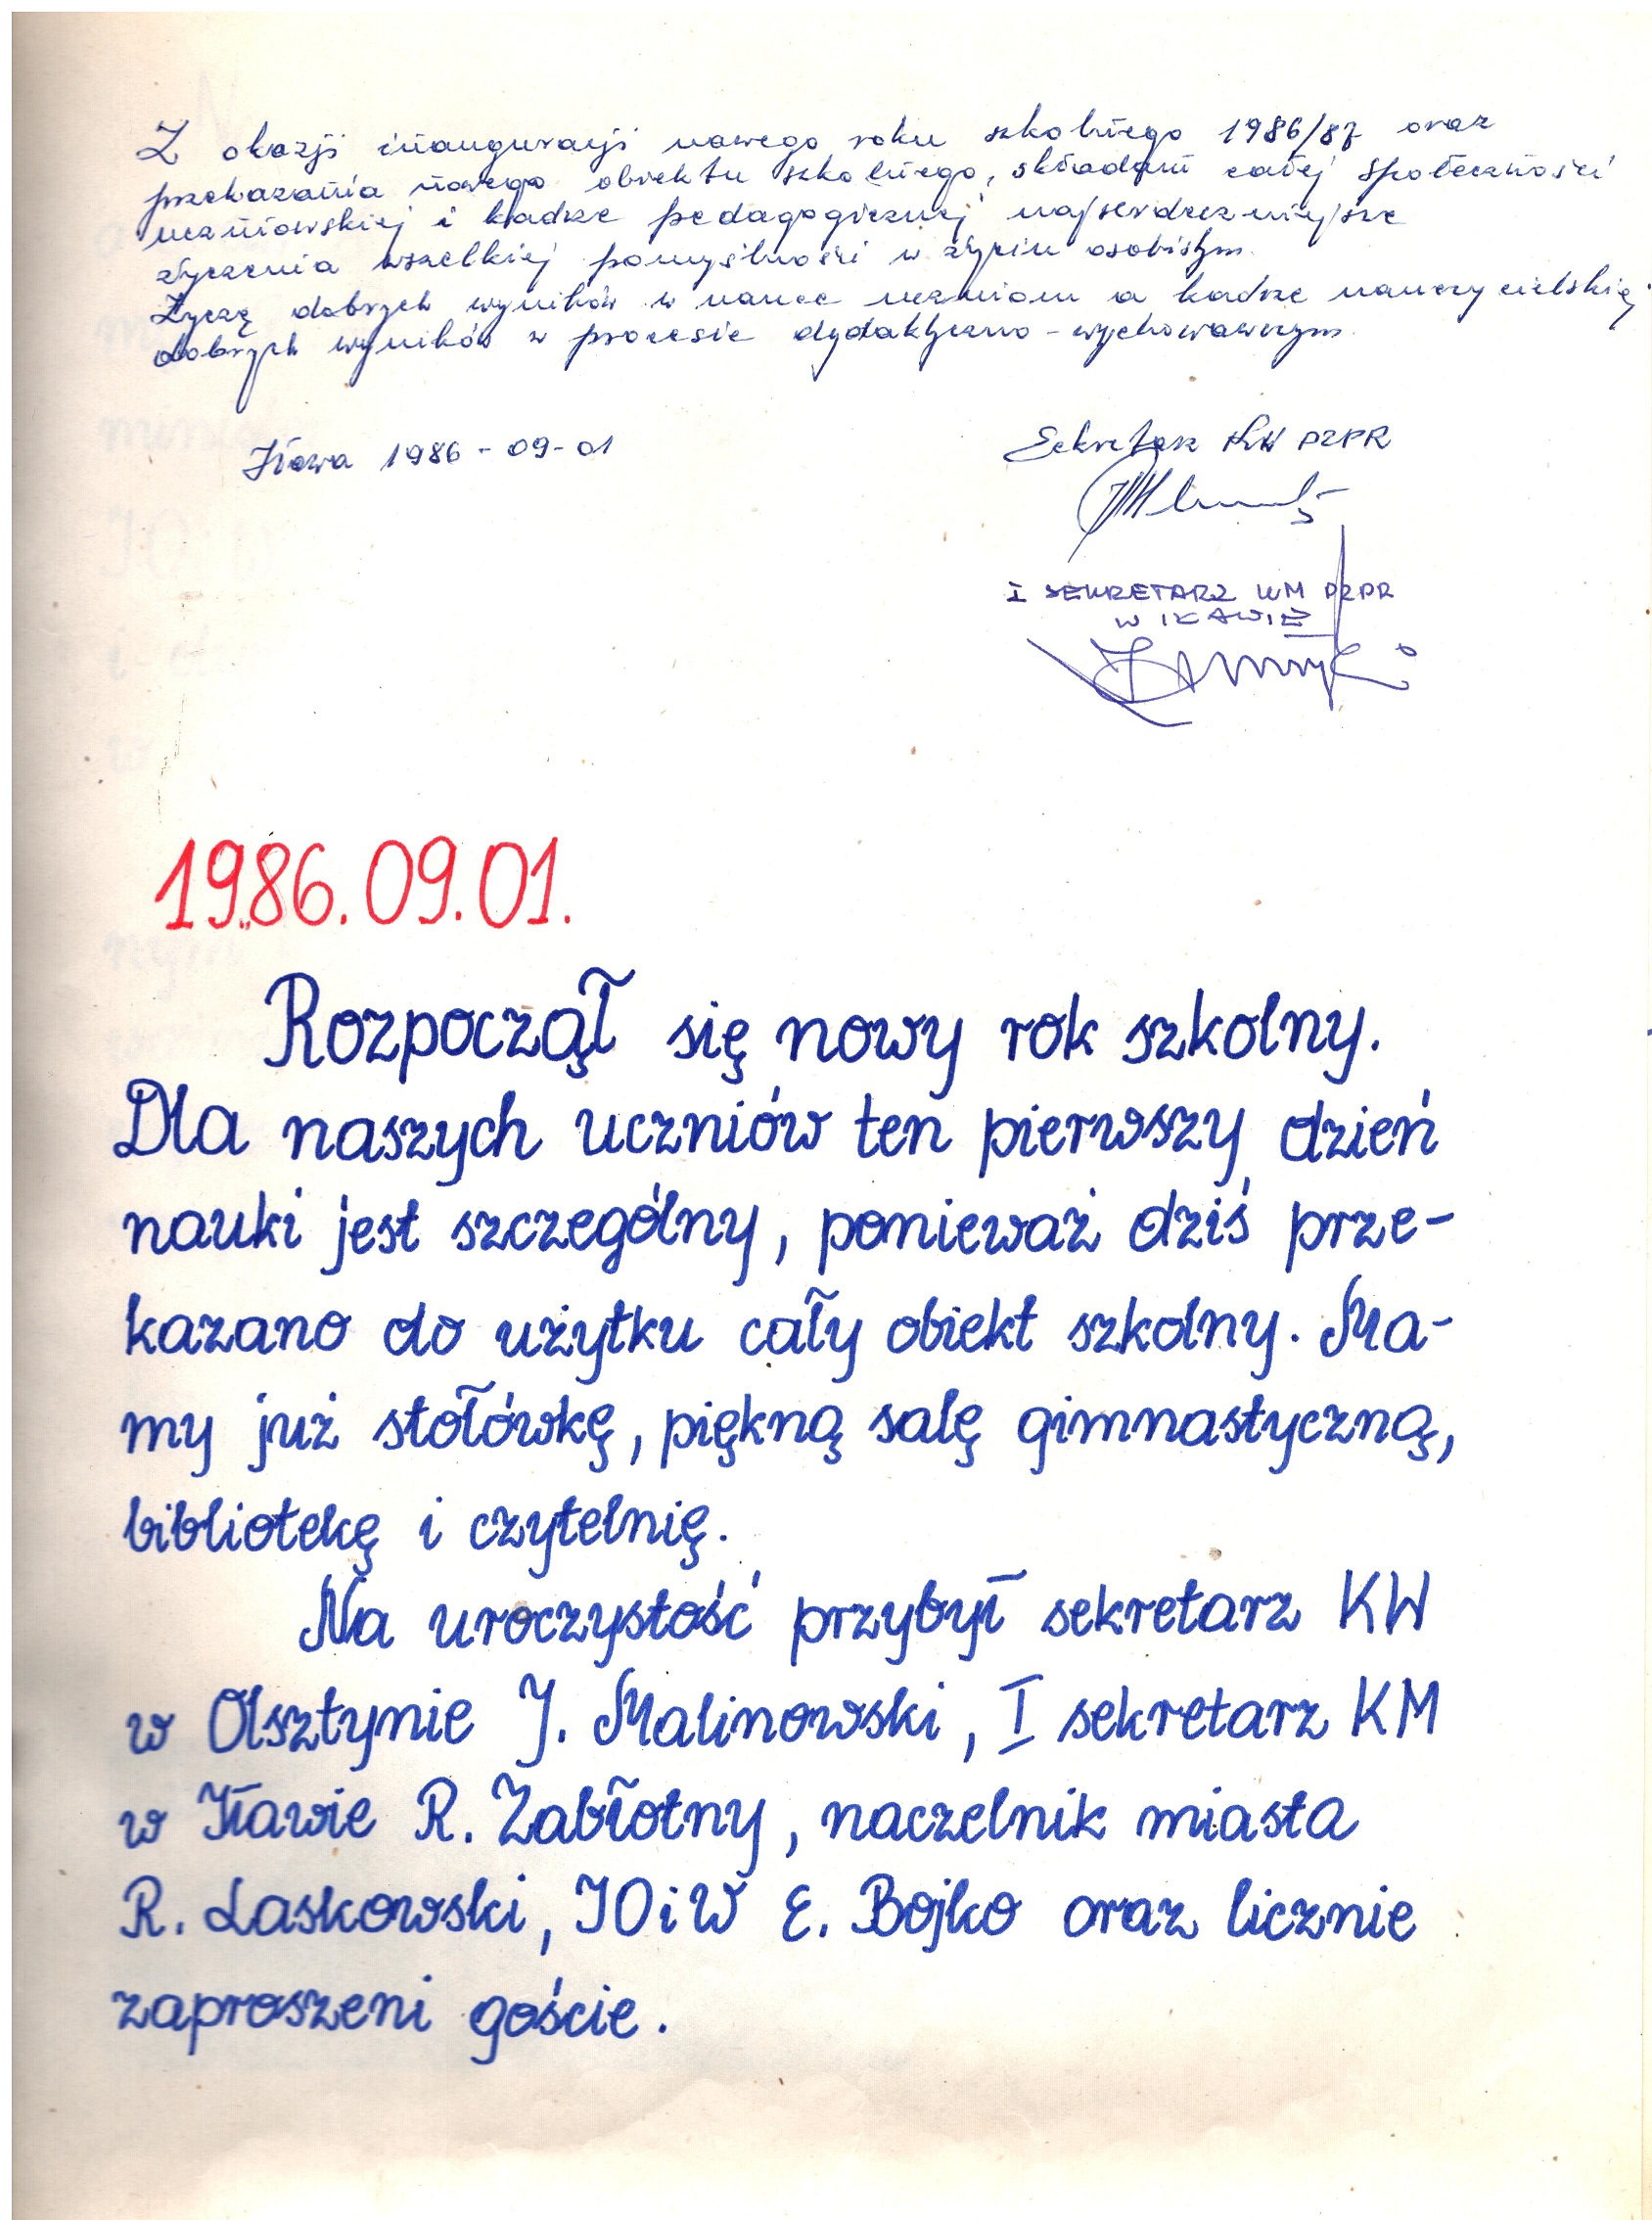 Z okazji inauguracji nowego roku szkolnego 1986/87 oraz
przekazania nowego obiektu szkolnego, składam całej społeczności
uczniowskiej i kadrze pedagogicznej najserdeczniejsze
życzenia wszelkiej pomyślności w życiu osobistym.
Życzę dobrych wyników w nauce uczniom a kadrze nauczycielskiej
dobrych wyników w procesie dydaktyczno-wychowawczym.
Iława 1986-09-01
Sekretarz KW PZPR
I SEKRETARZ KM PZPR
W IŁAWIE
1986.09.01.
Rozpoczął się nowy rok szkolny.
Dla naszych uczniów ten pierwszy dzień
nauki jest szczególny, ponieważ dziś prze-
kazano do użytku cały obiekt szkolny. Ma-
my już stołówkę, piękną salę gimnastyczną,
bibliotekę i czytelnię.
Na uroczystość przybył sekretarz KW
w Olsztynie J. Malinowski, I sekretarz KM
w Iławie R. Zabłotny, naczelnik miasta
R. Laskowski, IOiW E. Bojko oraz licznie
zaproszeni goście.